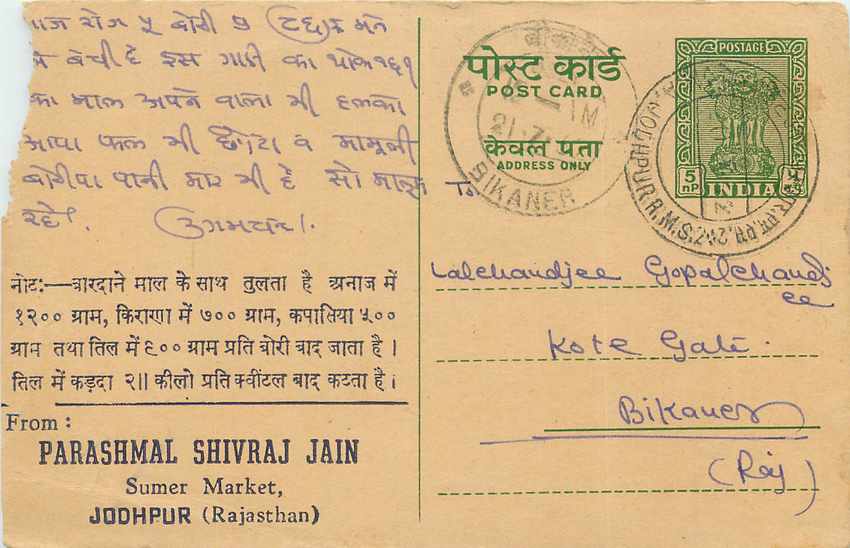 बोरी
बेची है इस गाडी का
का माल अपने वाला भी हलका
आया फल भी छोटा व मामूली
पानी मार भी है सो मालुम
रहे।
नोट:—बारदाने माल के साथ तुलता है अनाज में
१२०० ग्राम, किराणा में ७०० ग्राम, कपासिया ५००
ग्राम तथा तिल में ९०० ग्राम प्रति बोरी बाद जाता है।
तिल में कड़दा २॥ कीलो प्रति क्वींटल बाद कटता है।
From :
PARASHMAL SHIVRAJ JAIN
Sumer Market,
JODHPUR (Rajasthan)
पोस्ट कार्ड
POST CARD
केवल पता
ADDRESS ONLY
BIKANER
POSTAGE
5 nP
INDIA
JODHPUR R.M.S.
To,
Lalchandjee Gopalchandj
ee
Kote Gate.
Bikaner
(Raj)